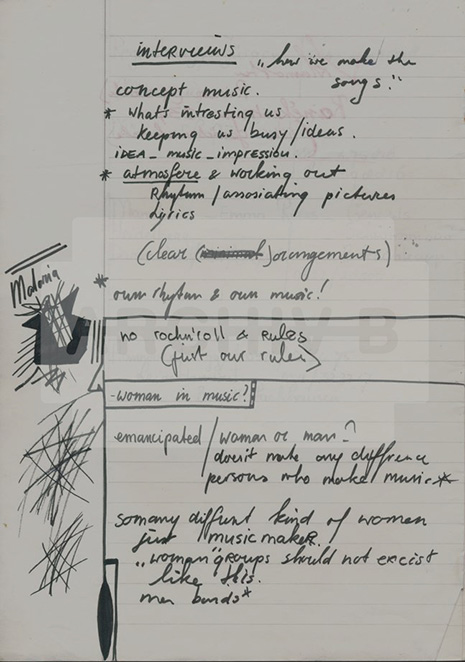 interviews „how we make the
songs."
concept music.
* what's intresting us
keeping us busy/ideas.
iDEA_music_impression.
* atmosfere & working out
Rhytum / assosiating pictures
Lyrics
(clear () orangements)
* own rhytum & own music!
Malaria
no rochn'roll & RUleS
(just our rules)
-woman in music?
emancipated / woman or man_?
doesn't make any diffrence
persons who make music*
somany diffrent kind of women
just musicmakeR.
„women"groups should not excist
like this.
men bands*
ARCHIV B